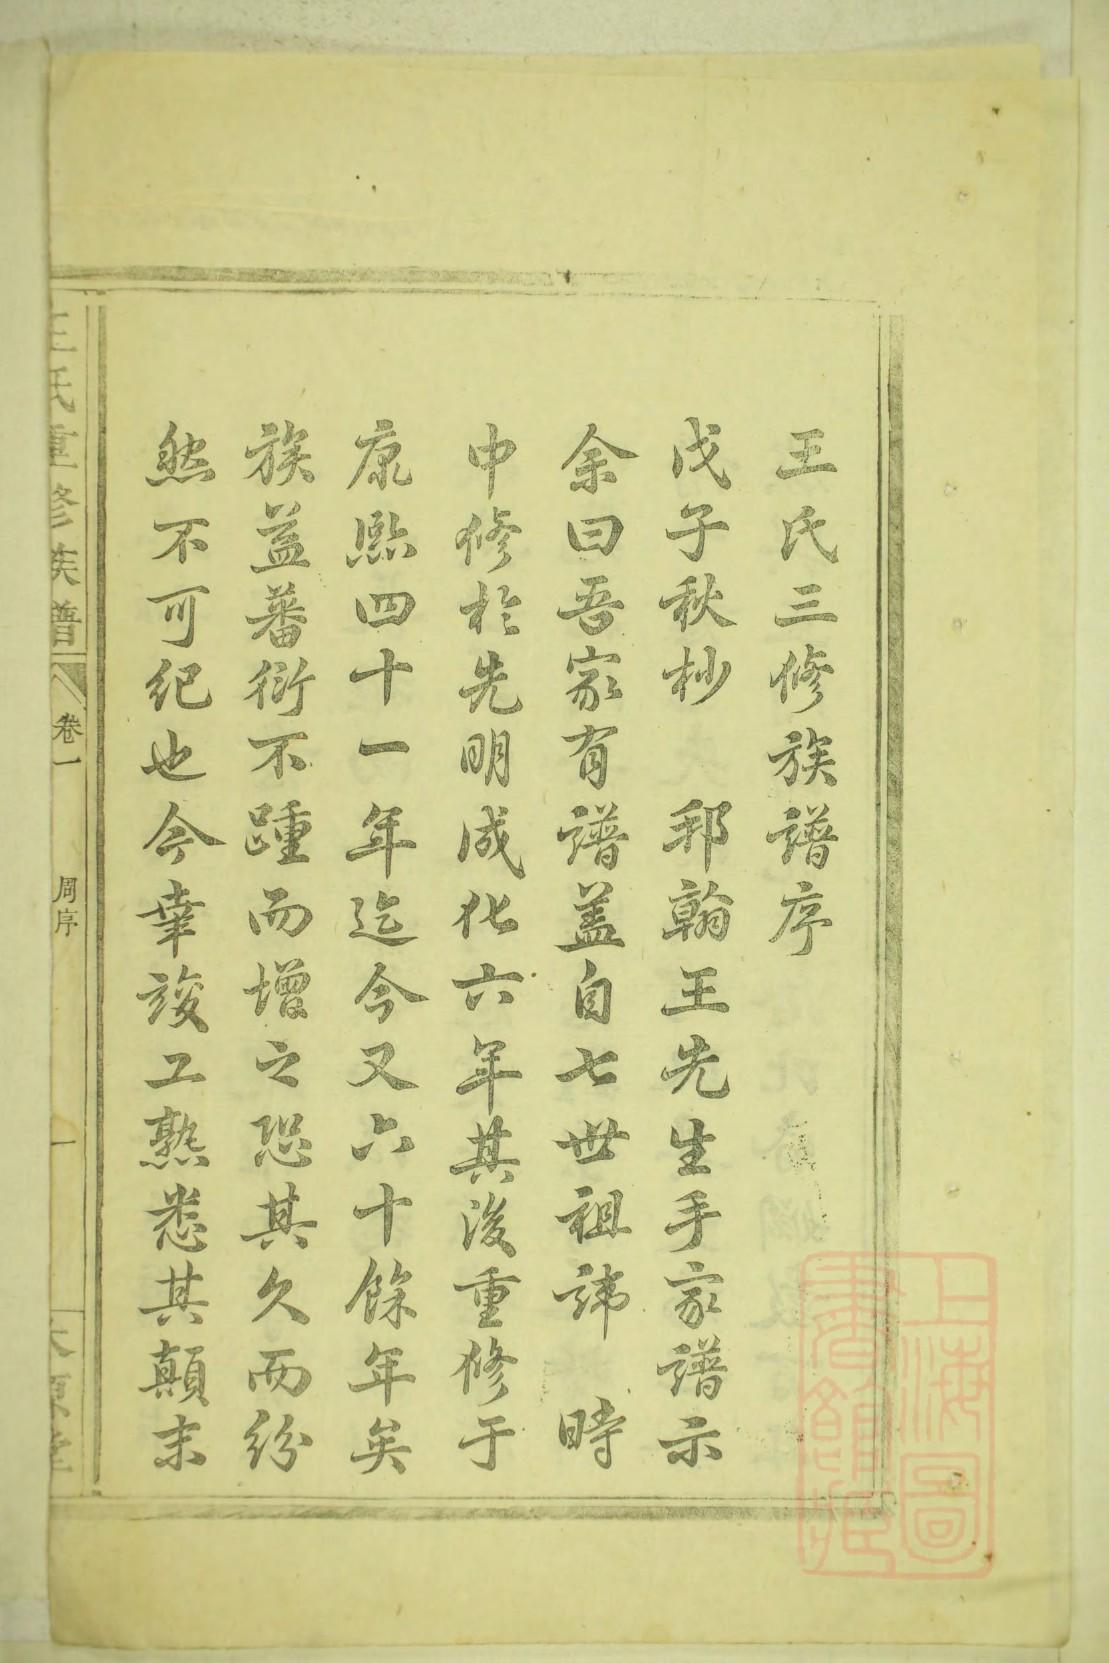 王氏三修族譜序
戊子秋杪　邦翰王先生手家譜示
余曰吾家有譜蓋自七世祖諱　時
中修於先明成化六年其後重修于
康熙四十一年迄今又六十餘年矣
族益蕃衍不踵而增之恐其久而紛
然不可紀也今幸竣工熟悉其顛末
王氏重修族譜
卷一
周序
一
太原堂
上海圖
書館藏